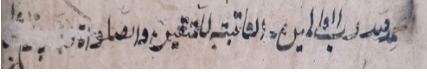 لله رب العالمين والعاقبة للمتقين والصلوة